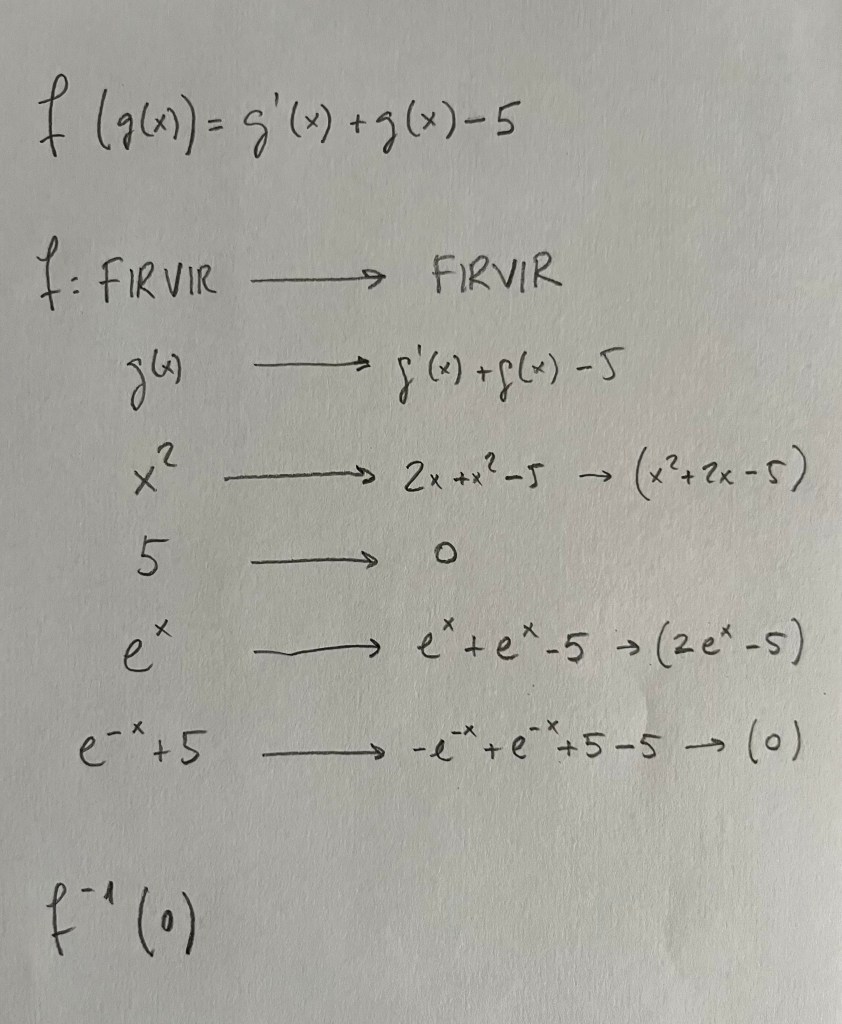 f (g(x)) = g'(x) + g(x) - 5
f: FIRVIR → FIRVIR
g(x) → g'(x) + g(x) - 5
x² → 2x + x² - 5 → (x² + 2x - 5)
5 → 0
eˣ → eˣ + eˣ - 5 → (2eˣ - 5)
e⁻ˣ + 5 → -e⁻ˣ + e⁻ˣ + 5 - 5 → (0)
f⁻¹ (0)